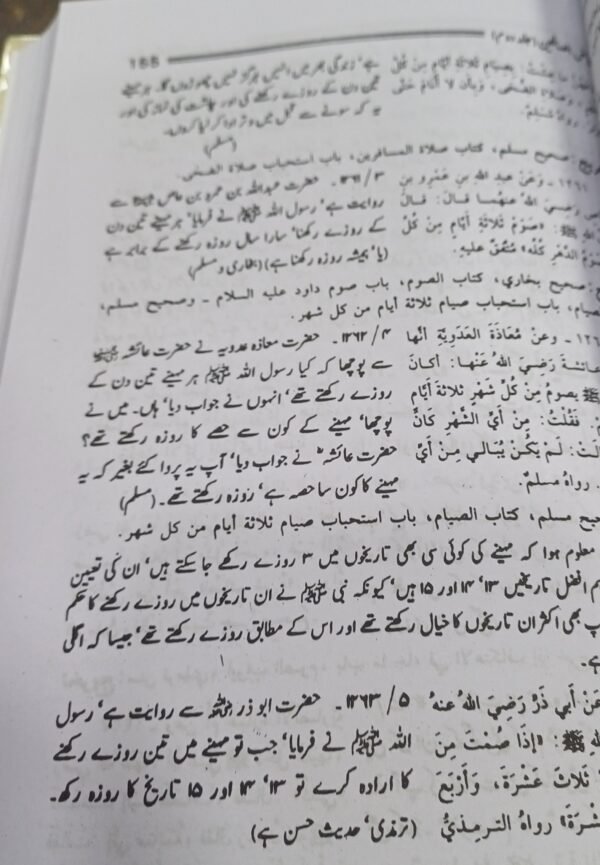 ریاض الصالحین (جلد دوم)
168
بِصِيَامِ ثَلَاثَةِ أَيَّامٍ مِنْ كُلِّ
وَصَلَاةِ الضُّحَى، وَبِأَنْ لَا أَنَامَ حَتَّى
رواهُ مُسْلِمٌ.
ہے' زندگی بھر میں انہیں ہرگز نہیں چھوڑوں گا۔ ہر مہینے
تین دن کے روزے رکھنے کی اور چاشت کی نماز کی اور
یہ کہ سونے سے قبل میں وتر ادا کر لیا کروں۔
(مسلم)
صحيح مسلم، كتاب صلاة المسافرين، باب استحباب صلاة الضحى.
١٢٦١ - وَعَنْ عبدِ اللهِ بنِ عَمْرِو بنِ
رَضِيَ اللهُ عَنْهُما قَالَ: قَالَ
ﷺ: «صَوْمُ ثَلَاثَةِ أَيَّامٍ مِنْ كُلِّ
صَوْمُ الدَّهْرِ كُلِّهِ» مُتَّفَقٌ عليهِ.
۳ / ۱۲۶۱ ۔ حضرت عبداللہ بن عمرو بن عاص رضی اللہ عنہ سے
روایت ہے' رسول اللہ ﷺ نے فرمایا' ہر مہینے تین دن
کے روزے رکھنا' سارا سال روزہ رکھنے کے برابر ہے
(یا' ہمیشہ روزہ رکھنا ہے) (بخاری و مسلم)
صحيح بخاري، كتاب الصوم، باب صوم داود عليه السلام - وصحيح مسلم،
باب استحباب صيام ثلاثة أيام من كل شهر.
- وعنْ مُعَاذَةَ العَدَوِيَّةِ أنَّها
عائشةَ رَضِيَ اللهُ عَنْهَا: أكانَ
ﷺ يصومُ مِنْ كُلِّ شَهْرٍ ثلاثةَ أيَّامٍ
فَقُلْتُ: مِنْ أَيِّ الشَّهْرِ كَانَ
قَالَتْ: لَمْ يَكُنْ يُبَالي مِنْ أَيِّ
رواهُ مسلمٌ.
۴ / ۱۲۶۲ ۔ حضرت معاذہ عدویہ نے حضرت عائشہ رضی اللہ عنہا
سے پوچھا کہ کیا رسول اللہ ﷺ ہر مہینے تین دن کے
روزے رکھتے تھے' انہوں نے جواب دیا' ہاں۔ میں نے
پوچھا' مہینے کے کون سے حصے کا روزہ رکھتے تھے؟
حضرت عائشہ ؓ نے جواب دیا' آپ یہ پروا کئے بغیر کہ یہ
مہینے کا کون سا حصہ ہے' روزہ رکھتے تھے۔ (مسلم)
صحيح مسلم، كتاب الصيام، باب استحباب صيام ثلاثة أيام من كل شهر.
معلوم ہوا کہ مہینے کی کوئی سی بھی تاریخوں میں ۳ روزے رکھے جا سکتے ہیں' ان کی تعیین
افضل تاریخیں ۱۳' ۱۴ اور ۱۵ ہیں' کیونکہ نبی ﷺ نے ان تاریخوں میں روزے رکھنے کا حکم
بھی اکثر ان تاریخوں کا خیال رکھتے تھے اور اس کے مطابق روزے رکھتے تھے' جیسا کہ اگلی
ہے۔
عَنْ أَبي ذَرٍّ رَضِيَ اللهُ عنهُ
ﷺ: «إِذَا صُمْتَ مِنَ
ثَلَاثَ عَشْرَةَ، وَأَرْبَعَ
عَشْرَةَ» رواهُ الترمِذِيُّ
۵ / ۱۲۶۳ ۔ حضرت ابو ذر رضی اللہ عنہ سے روایت ہے' رسول
اللہ ﷺ نے فرمایا' جب تو مہینے میں تین روزے رکھنے
کا ارادہ کرے تو ۱۳' ۱۴ اور ۱۵ تاریخ کا روزہ رکھ۔
(ترمذی' حدیث حسن ہے)